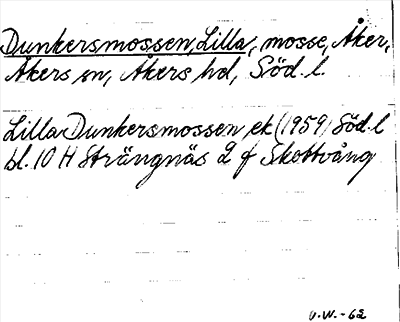 Dunkersmossen, Lilla, mosse, Åker,
Åkers sn, Åkers hd, Söd. l.
Lilla Dunkersmossen ek (1959) Söd. l
bl. 10 H Strängnäs 2 f Skottvång
U.W.-62